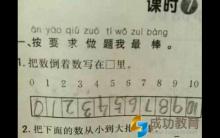 课时1
àn yāo qiú zuò tí wǒ zuì bàng
一、按要求做题我最棒。
1. 把数倒着数写在□里。
0 1 2 3 4 5 6 7 8 9 10
10 9 8 7 6 5 4 3 2 1 0
2. 把下面的数从小到大排
成功教育